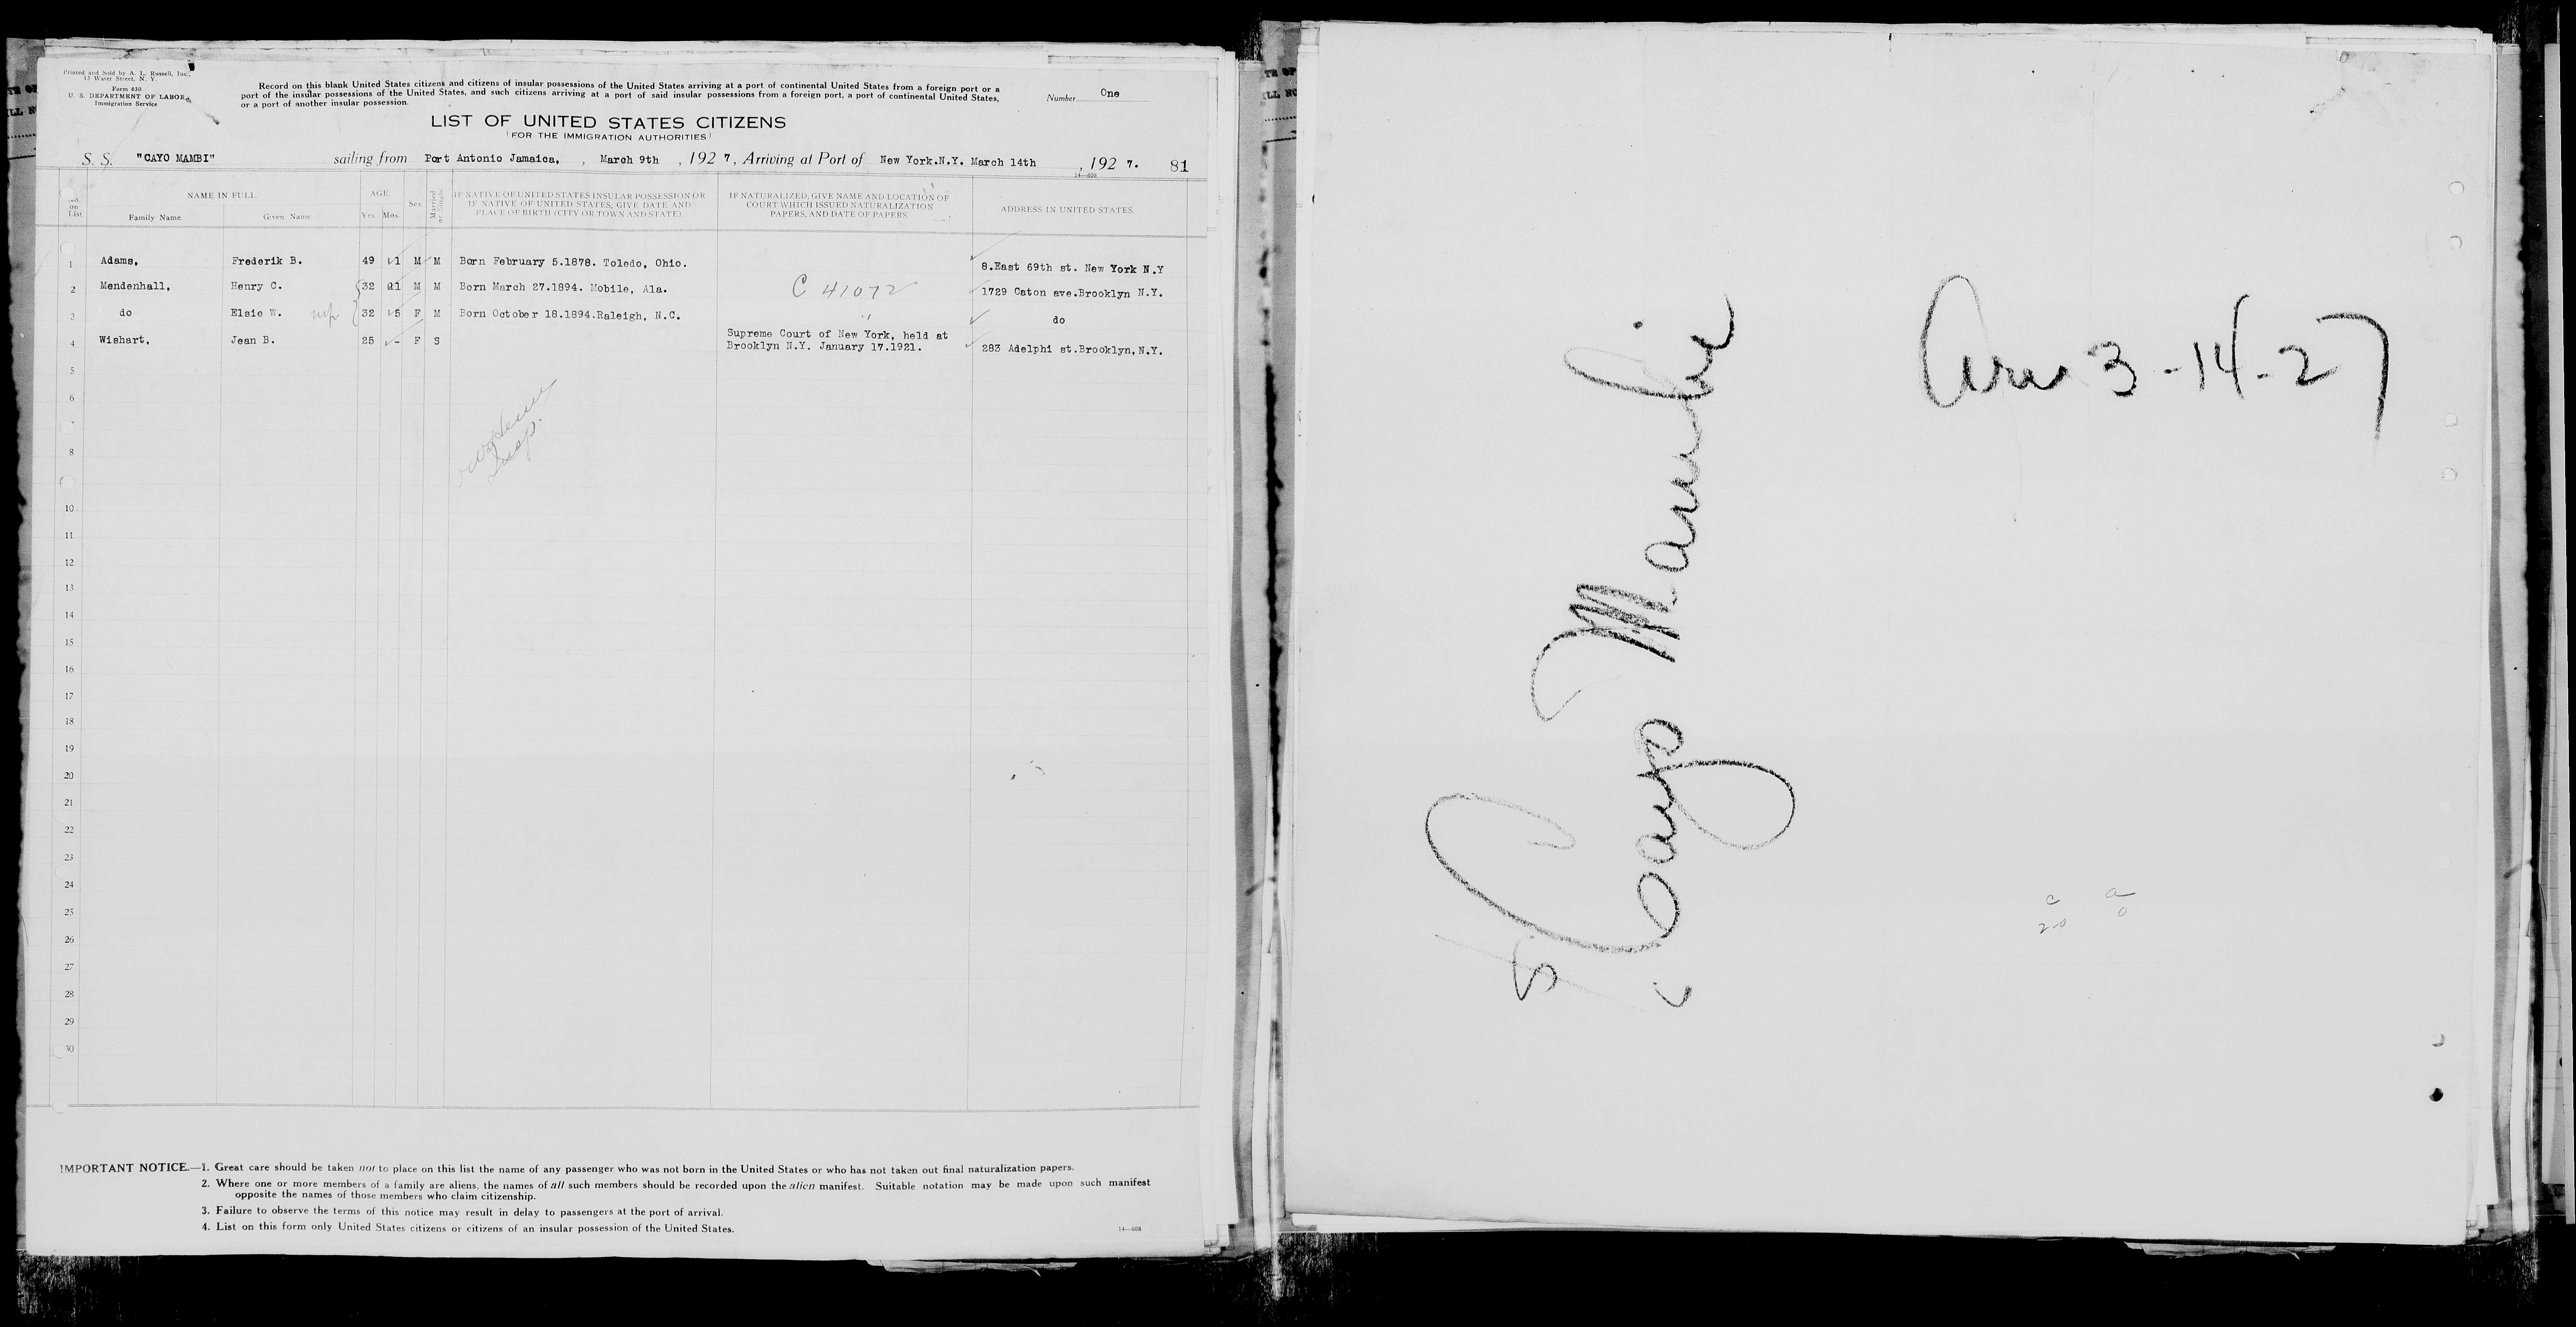 Printed and Sold by A. L. Russell, Inc.,
13 Water Street, N. Y.
Form 630
U. S. DEPARTMENT OF LABOR
Immigration Service
Record on this blank United States citizens and citizens of insular possessions of the United States arriving at a port of continental United States from a foreign port or a
port of the insular possessions of the United States, and such citizens arriving at a port of said insular possessions from a foreign port, a port of continental United States,
or a port of another insular possession.
Number One
LIST OF UNITED STATES CITIZENS
(FOR THE IMMIGRATION AUTHORITIES)
S. S. "CAYO MAMBI" sailing from Port Antonio Jamaica, , March 9th , 192 7, Arriving at Port of New York.N.Y. March 14th , 192 7. 81
14—608
No. on List.
NAME IN FULL.
Family Name. Given Name.
AGE.
Yrs. Mos.
Sex.
Married or Single.
IF NATIVE OF UNITED STATES INSULAR POSSESSION OR
IF NATIVE OF UNITED STATES, GIVE DATE AND
PLACE OF BIRTH (CITY OR TOWN AND STATE).
IF NATURALIZED, GIVE NAME AND LOCATION OF
COURT WHICH ISSUED NATURALIZATION
PAPERS, AND DATE OF PAPERS
ADDRESS IN UNITED STATES.
1 Adams, Frederik B. 49 1 M M Born February 5.1878. Toledo, Ohio. 8.East 69th st. New York N.Y
2 Mendenhall, Henry C. 32 11 M M Born March 27.1894. Mobile, Ala. C 41072 1729 Caton ave.Brooklyn N.Y.
3 do Elsie W. 32 5 F M Born October 18.1894.Raleigh, N.C. " do
4 Wishart, Jean B. 25 - F S Supreme Court of New York, held at
Brooklyn N.Y. January 17.1921. 283 Adelphi st.Brooklyn,N.Y.
5
6
8
Insp.
10
11
12
13
14
15
16
17
18
19
20
21
22
23
24
25
26
27
28
29
30
IMPORTANT NOTICE.—1. Great care should be taken not to place on this list the name of any passenger who was not born in the United States or who has not taken out final naturalization papers.
2. Where one or more members of a family are aliens, the names of all such members should be recorded upon the alien manifest. Suitable notation may be made upon such manifest
opposite the names of those members who claim citizenship.
3. Failure to observe the terms of this notice may result in delay to passengers at the port of arrival.
4. List on this form only United States citizens or citizens of an insular possession of the United States.
14—608
SS Cayo Mambi
Arr 3-14-27
c a
20 0